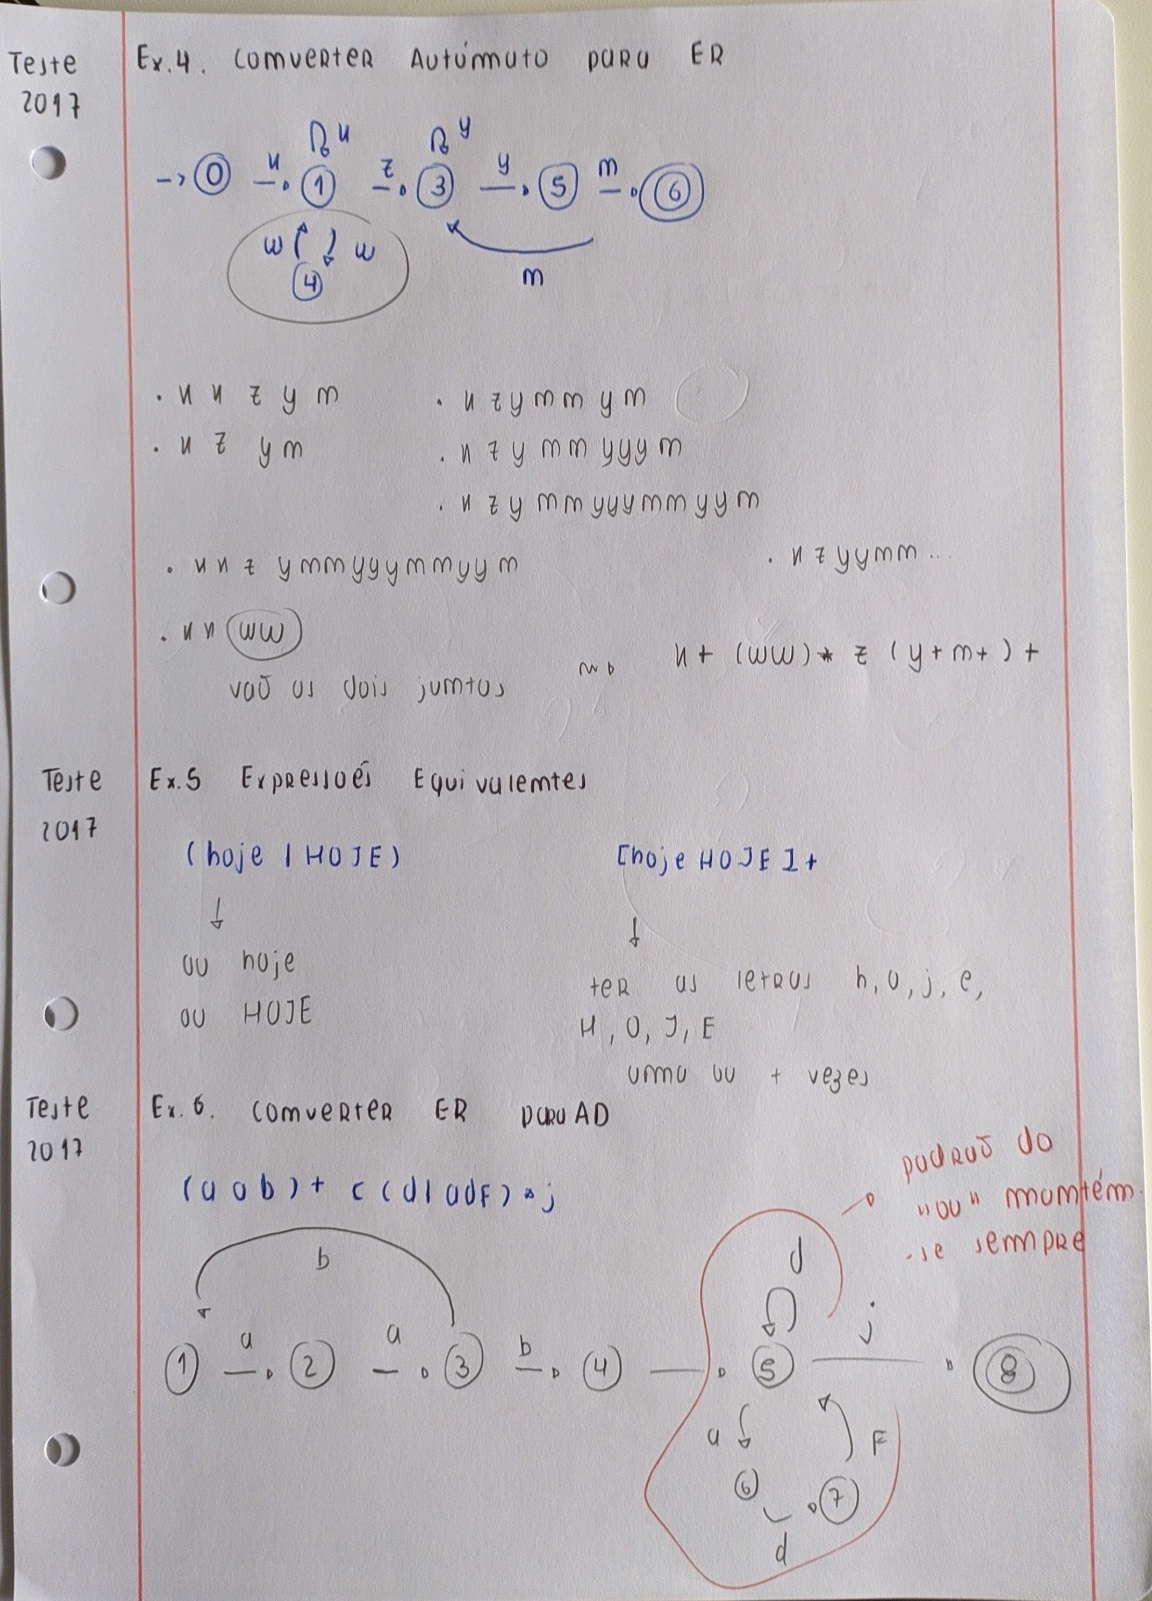 Teste 2017
Ex.4. Converter Autómato para ER
x x y
→ 0 x 1 z 3 y 5 m 6
w w
4
m
. x x z y m
. x z y m m y m
. x z y m
. x z y m m y y y m
. x z y m m y y y m m y y m
. x x z y m m y y y m m y y m
. x z y y m m ...
. x x (ww)
vão os dois juntos
x+ (ww)* z (y+m+)+
Teste 2017
Ex.5 Expressões Equivalentes
(hoje | HOJE)
[hoje HOJE]+
ou hoje
ter as letras h, o, j, e,
ou HOJE
H, O, J, E
uma ou + vezes
Teste 2017
Ex.6. Converter ER para AD
(a a b)+ c (d|adF)*j
padrão do
"ou" mantém
-se sempre
b
d
1 a 2 a 3 b 4 5 j 8
a F
6 7
d